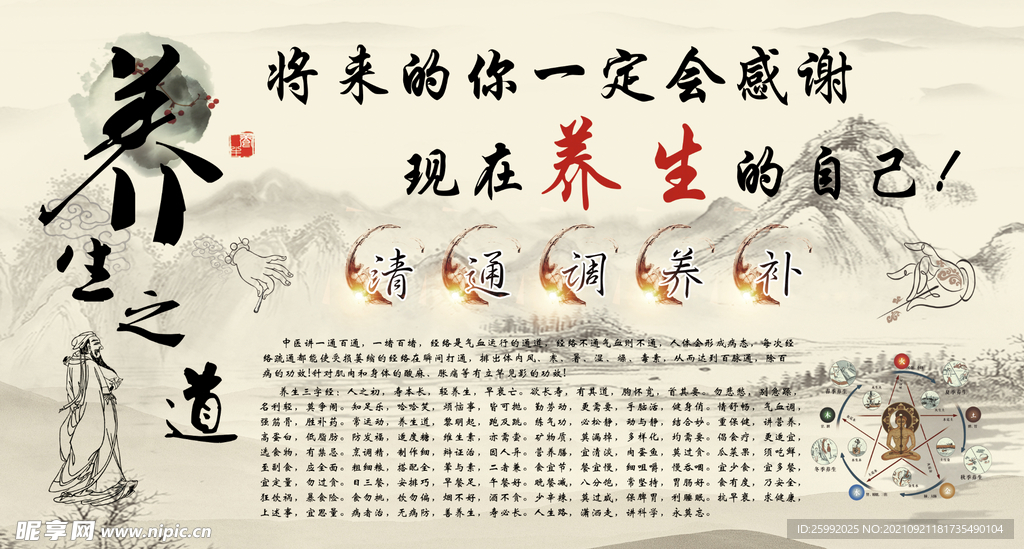 养生之道
将来的你一定会感谢
现在养生的自己!
清 通 调 养 补
中医讲一通百通,一堵百堵,经络是气血运行的通道,经络不通气血则不通,人体会形成病态,每次经
络疏通都能使受损萎缩的经络在瞬间打通,排出体内风,寒,暑,湿,燥,毒素,从而达到百脉通,除百
病的功效!针对肌肉和身体的酸麻、胀痛等有立竿见影的功效!
养生三字经:人之初,寿本长,轻养生,早衰亡。欲长寿,有其道,胸怀宽,首其要。勿悲愁,别急躁,
名利轻,莫争闹。知足乐,哈哈笑,烦恼事,皆可抛。勤劳动,更需要,手脑活,健身俏。情舒畅,气血调,
强筋骨,胜补药。常运动,养生道,黎明起,跑双跳。练气功,必松静,动与静,结合妙。重保健,讲营养,
高蛋白,低脂肪。防发福,适度糖,维生素,亦需尝。矿物质,莫漏掉,多样化,均需要。倡食疗,更适宜,
选食物,有禁忌。烹调精,制作细,辩证治,因人异。营养膳,宜清淡,肉蛋鱼,莫过贪。瓜菜果,须吃鲜,
至副食,应全面。粗细粮,搭配全,荤与素,二者兼。食宜节,餐宜慢,细咀嚼,慢吞咽。宜少食,宜多餐,
宜定量,勿过食。日三餐,安排巧,早餐足,午餐好。晚餐减,八分饱,常坚持,胃肠好。食有度,乃安全,
狂饮祸,暴食险。食勿挑,饮勿偏,烟不好,酒不贪。少辛辣,莫过咸,保脾胃,利睡眠。抗早衰,求健康,
上述事,宜思量。病者治,无病防,善养生,寿必长。人生路,潇洒走,讲科学,永莫忘。
冬季养生
秋季养生
昵享网 www.nipic.cn
ID:25992025 NO:20210921181735490104